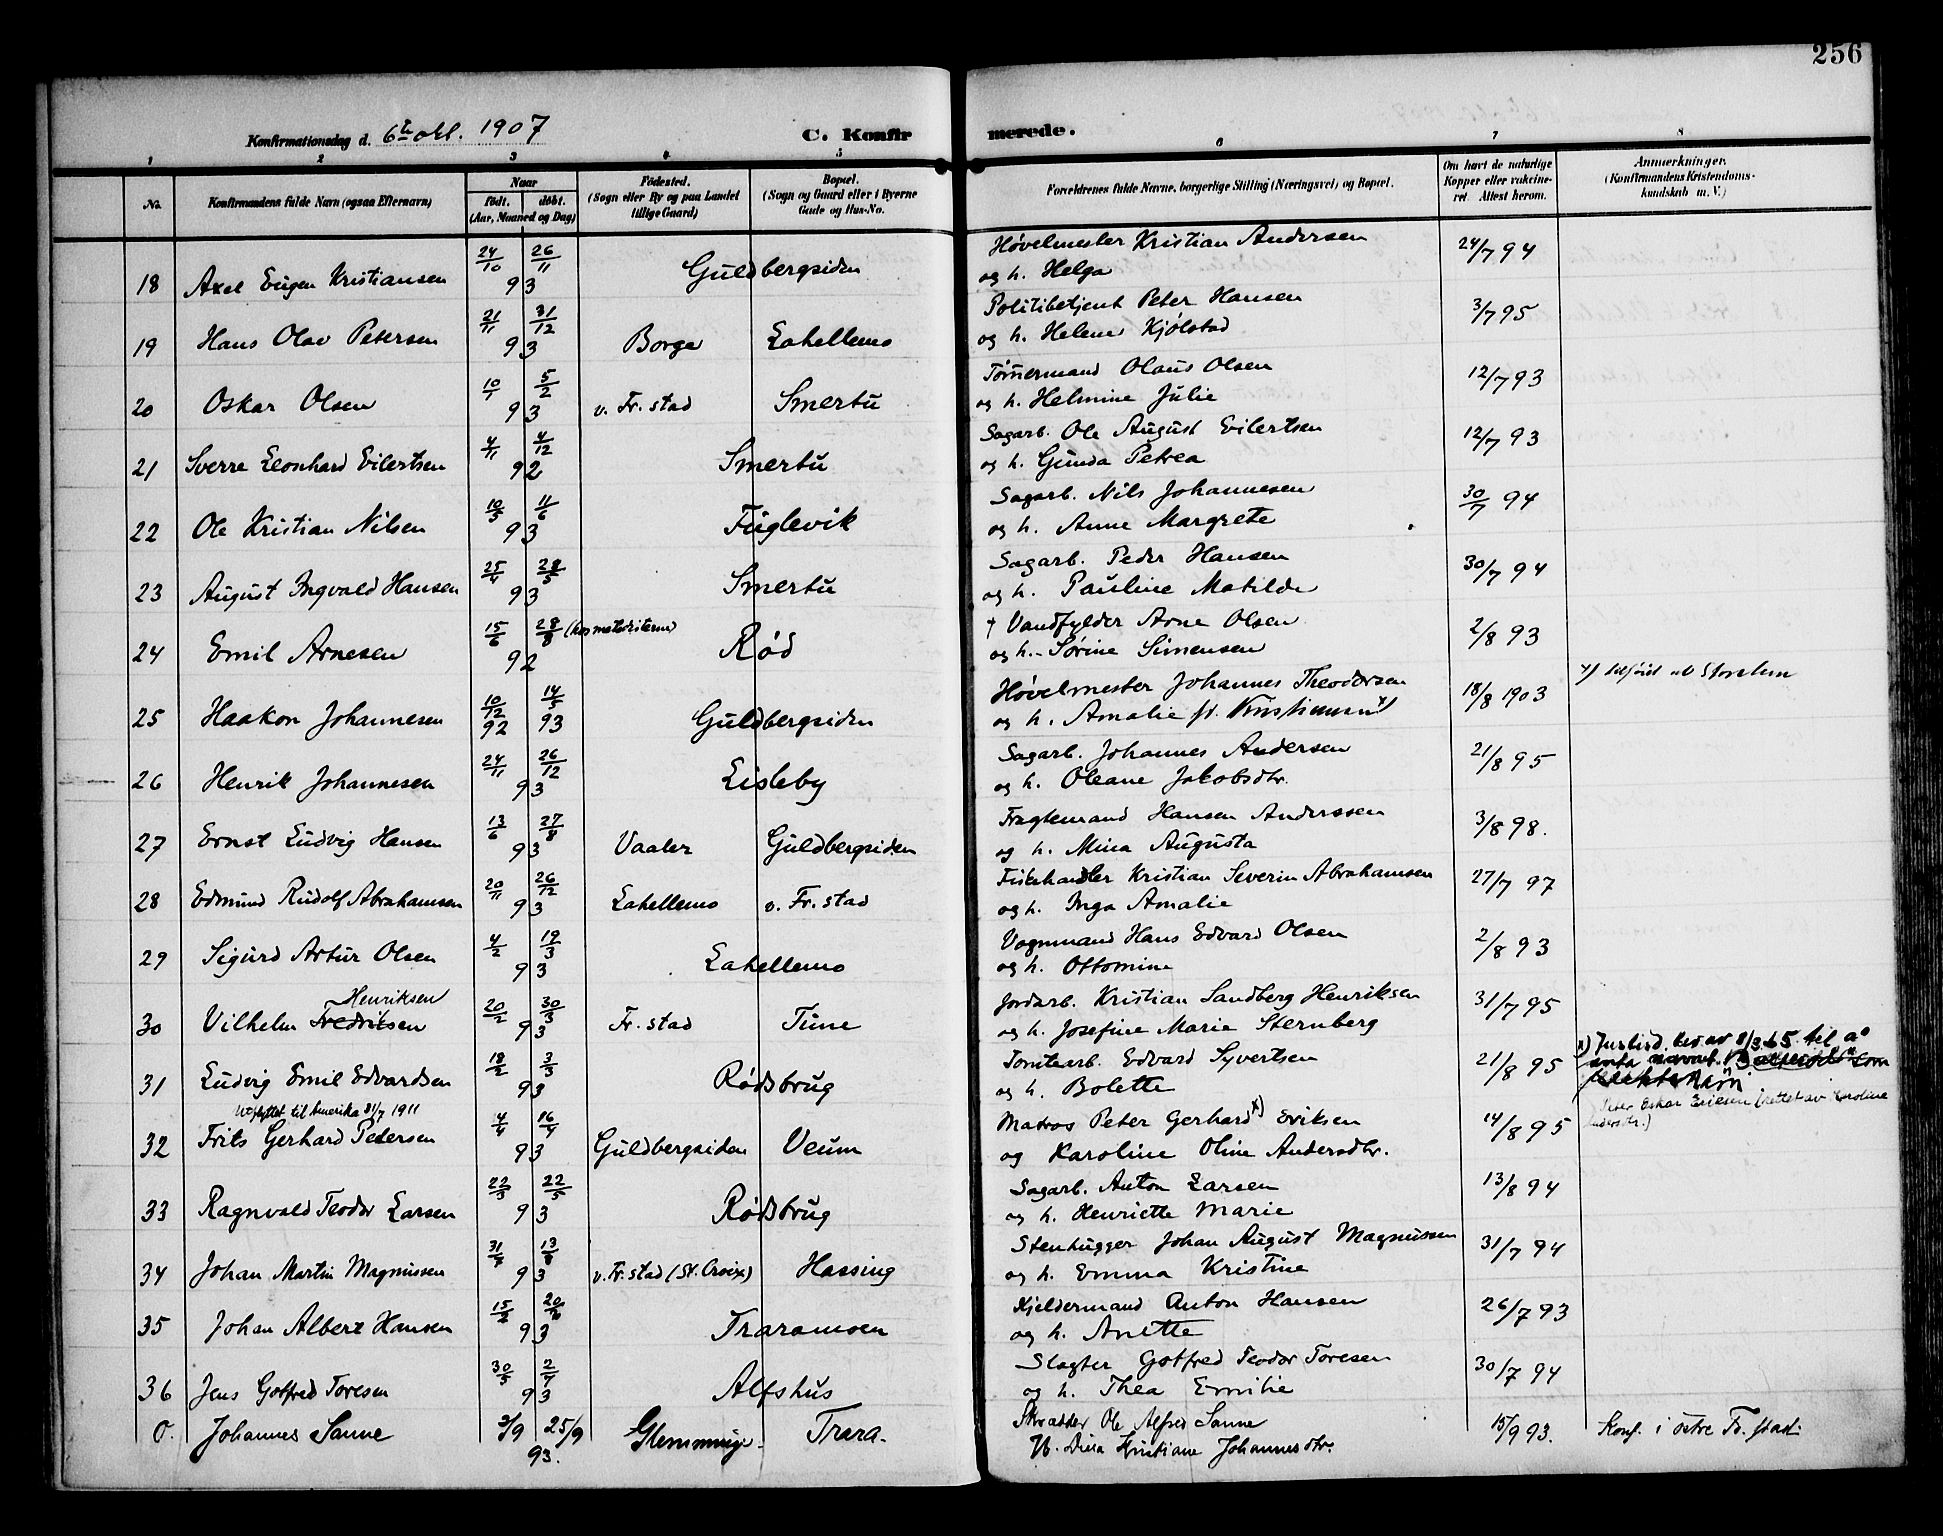 256
Konfirmationsdag d. 6te okt. 1907 C. Konfirmerede.
1 2 3 4 5 6 7 8
No. Konfirmandens fulde Navn (ogsaa Efternavn) Naar født. døbt. (Aar, Maaned og Dag) Fødested. (Sogn eller By og paa Landet tillige Gaard) Bopæl. (Sogn og Gaard eller i Byerne Gade og Hus-No. Forældrenes fulde Navne, borgerlige Stilling (Næringsvei) og Bopæl. Om havt de naturlige Kopper eller vakcineret. Attest herom. Anmerkninger. (Konfirmandens Kristendomskundskab m. V.)
18 Axel Eugen Kristiansen 24/10 26/11 93 Guldbergsiden Høvelmester Kristian Andersen og h. Helga 24/7 94
19 Hans Olav Petersen 21/11 31/12 93 Borge Lahellemo Politibetjent Peter Hansen og h. Helene Kjølstad 3/7 95
20 Oskar Olsen 10/1 5/2 93 v. Fr.stad Smertu Tømmermand Olaus Olsen og h. Helmine Julie 12/7 93
21 Sverre Leonhard Eilertsen 4/11 4/12 92 Smertu Sagarb. Ole August Eilertsen og h. Gunda Petrea 12/7 93
22 Ole Kristian Nilsen 10/5 11/6 93 Fuglevik Sagarb. Nils Johannesen og h. Anne Margrete 30/7 94
23 August Ingvald Hansen 25/4 28/5 93 Smertu Sagarb. Peder Hansen og h. Pauline Matilde 30/7 94
24 Emil Arnesen 15/6 28/8 (hos metodisterne) 92 Rød † Vandfylder Arne Olsen og h. Sørine Simensen 2/8 93
25 Haakon Johannesen 10/12 92 14/5 93 Guldbergsiden Høvelmester Johannes Theodorsen og h. Amalie f. Kristiansen x) 18/8 1903 x) tilføiet
26 Henrik Johannesen 24/11 26/12 93 Lisleby Sagarb. Johannes Andersen og h. Oleane Jakobsdtr. 21/8 95
27 Ernst Ludvig Hansen 13/6 27/8 93 Vaaler Guldbergsiden Fragtemand Hansen Anderssen og h. Mina Augusta 3/8 98.
28 Edmund Rudolf Abrahamsen 20/11 26/12 93 Lahellemo v. Fr.stad Fiskehandler Kristian Severin Abrahamsen og h. Inga Amalie 27/7 97
29 Sigurd Artur Olsen 4/2 19/3 93 Lahellemo Vognmand Hans Edvard Olsen og h. Ottomine 2/8 93
30 Vilhelm Fredriksen Henriksen 20/2 30/3 93 Fr.stad Tune Jordarb. Kristian Sandberg Henriksen og h. Josefine Marie Sternberg 31/7 95
31 Ludvig Emil Edvardsen 18/2 3/3 93 Rødsbrug Tomtearb. Edvard Syvertsen og h. Bolette 21/8 95
x) Justisd. bev. av 8/3 65 til å
32 Frits Gerhard Petersen Utflyttet til Amerika 31/7 1911 4/4 16/4 93 Guldbergsiden Veum Matros Peter Gerhard x) Eriksen og Karoline Oline Andersdtr. 14/8 95 Peter Oskar Eriksen (rettet av Karoline Andersdtr.)
33 Ragnvald Teodor Larsen 22/3 22/5 93 Rødsbrug Sagarb. Anton Larsen og h. Henriette Marie 13/8 94
34 Johan Martin Magnussen 31/7 13/8 93 v. Fr.stad (St. Croix) Hassing Stenhugger Johan August Magnussen og h. Emma Kristine 31/7 94
35 Johan Albert Hansen 93 Traramoen Kjeldermand Anton Hansen og h. Anette 26/7 93
36 Jens Gotfred Toresen 93 Alfshus Slagter Gotfred Teodor Toresen og h. Thea Emilie 30/7 94
0. Johannes Sanne 3/9 25/9 93. Glemminge. Trara. Skrædder Ole Alfred Sanne H. Dina Kristiane Johannesdtr. 15/9 93. Konf. i østre Fr.stad.